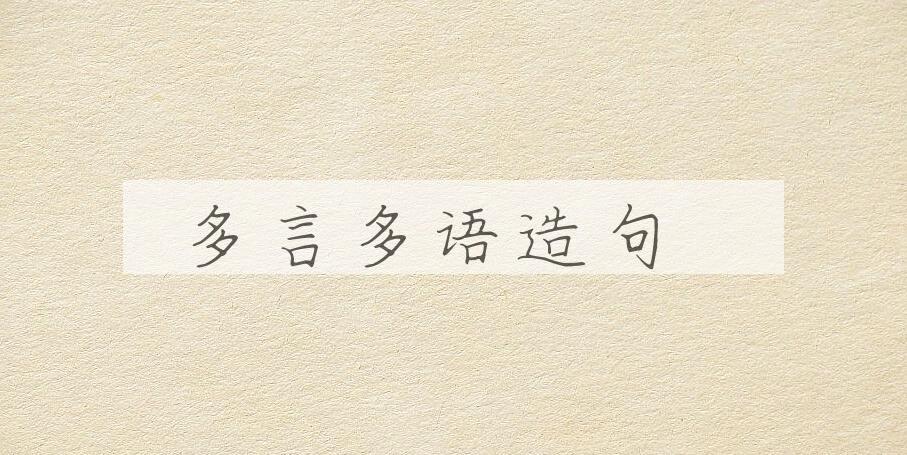 多言多语造句